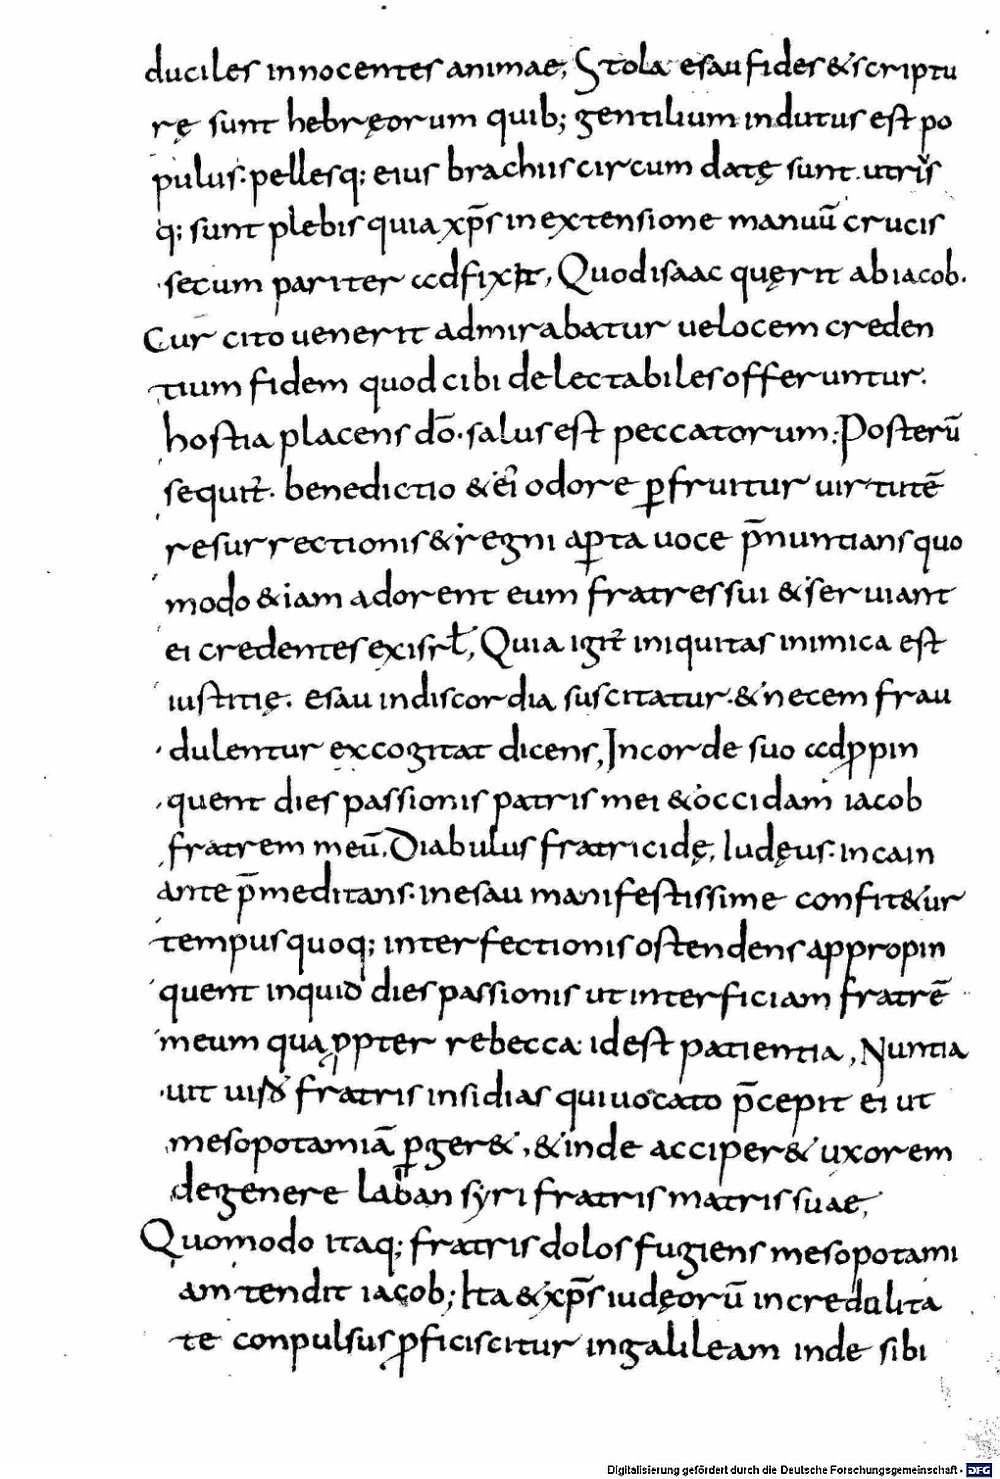 duciles innocentes animae; Stola esau fides & scriptu
rę sunt hebręorum quib; gentilium indutus est po
pulus. pellesq; eius brachiis circum datę sunt. utris
q; sunt plebis quia xp̄s in extensione manuū crucis
secum pariter adfixit, Quod isaac quęrit ab iacob.
Cur cito uenerit admirabatur uelocem creden
tium fidem quod cibi delectabiles offeruntur.
hostia placens dō. salus est peccatorum; Posterū
sequit̄. benedictio & ei odore ꝑfruitur uirtutē
resurrectionis & regni aꝑta uoce p̄nuntians quo
modo & iam adorent eum fratres sui & seruiant
ei credentes ex isrł, Quia igit̄ iniquitas inimica est
iustitię. esau in discordia suscitatur. & necem frau
dulentur excogitat dicens, In corde suo adꝓpin
quent dies passionis patris mei & occidam iacob
fratrem meū. Diabulus fratricidę, Iudęus. in cain
ante p̄meditans. in esau manifestissime confit&ur
tempus quoq; interfectionis ostendens appropin
quent inquid dies passionis ut interficiam fratrē
meum qua ꝓpter rebecca idest patientia, Nuntia
uit uiro fratris insidias qui uocato p̄cepit ei ut
mesopotamiā ꝑger&, & inde acciper& uxorem
de genere laban syri fratris matris suae,
Quomodo itaq; fratris dolos fugiens mesopotami
am tendit iacob; Ita & xp̄s iudęorū incredulita
te conpulsus ꝓficiscitur in galileam inde sibi
Digitalisierung gefördert durch die Deutsche Forschungsgemeinschaft - DFG